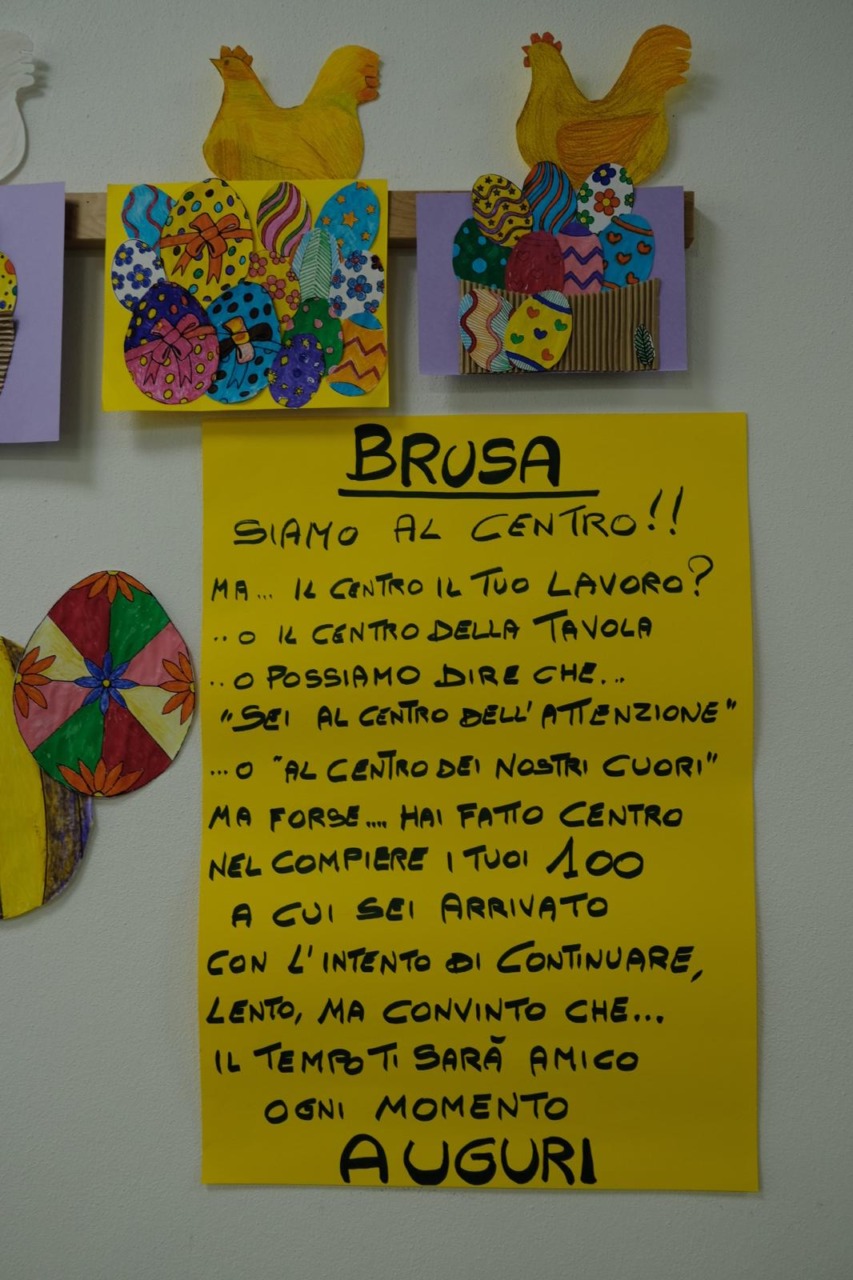 BRUSA
SIAMO AL CENTRO!!
MA... IL CENTRO IL TUO LAVORO?
..O IL CENTRO DELLA TAVOLA
..O POSSIAMO DIRE CHE...
"SEI AL CENTRO DELL'ATTENZIONE"
...O "AL CENTRO DEI NOSTRI CUORI"
MA FORSE.... HAI FATTO CENTRO
NEL COMPIERE I TUOI 100
A CUI SEI ARRIVATO
CON L'INTENTO DI CONTINUARE,
LENTO, MA CONVINTO CHE...
IL TEMPO TI SARÃ AMICO
OGNI MOMENTO
AUGURI